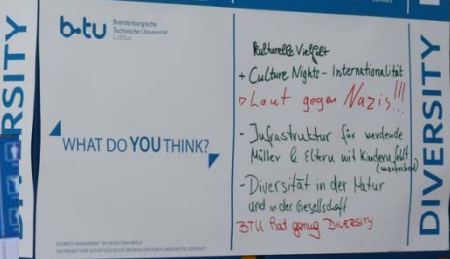 DIVERSITY
b-tu
Brandenburgische
Technische Universität
Cottbus
WHAT DO YOU THINK?
kulturelle Vielfalt
+ Culture Nights - Internationalität
Laut gegen Nazis!!!
- Infrastruktur für werdende
Mütter & Eltern mit Kindern fehlt
- Diversität in der Natur
und in der Gesellschaft
BTU hat genug DIVERSITY
DIVERSITY